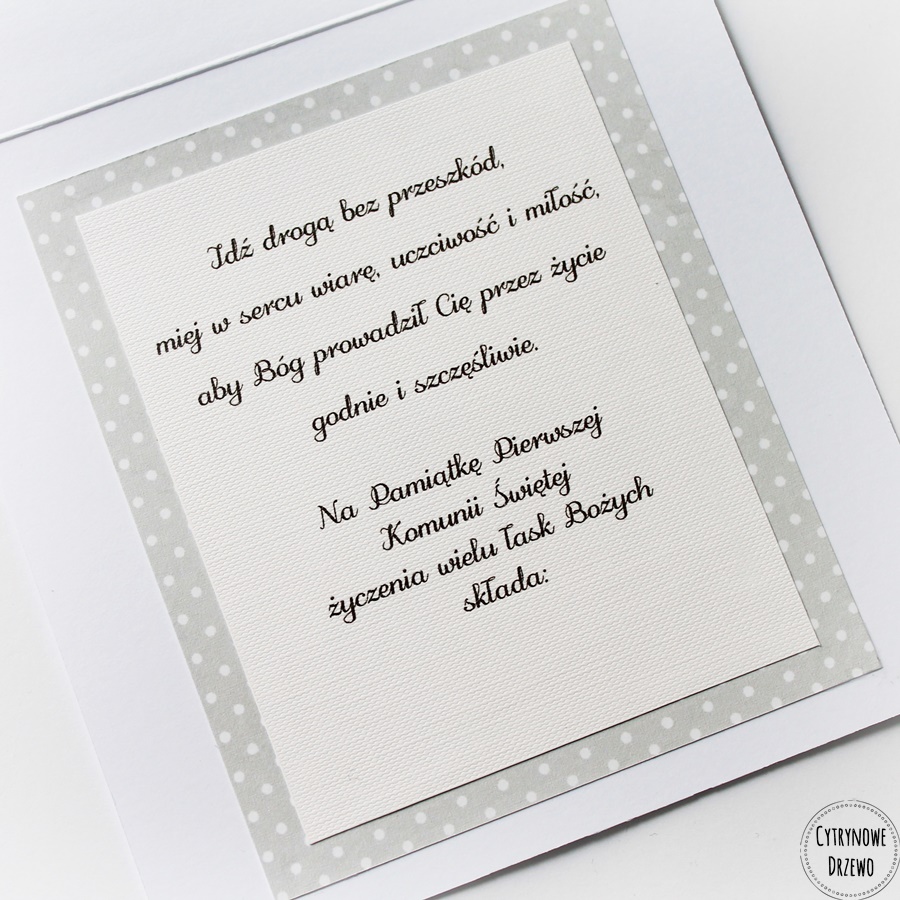 Idź drogą bez przeszkód,
miej w sercu wiarę, uczciwość i miłość,
aby Bóg prowadził Cię przez życie
godnie i szczęśliwie.
Na Pamiątkę Pierwszej
Komunii Świętej
życzenia wielu łask Bożych
składa:
CYTRYNOWE
DRZEWO